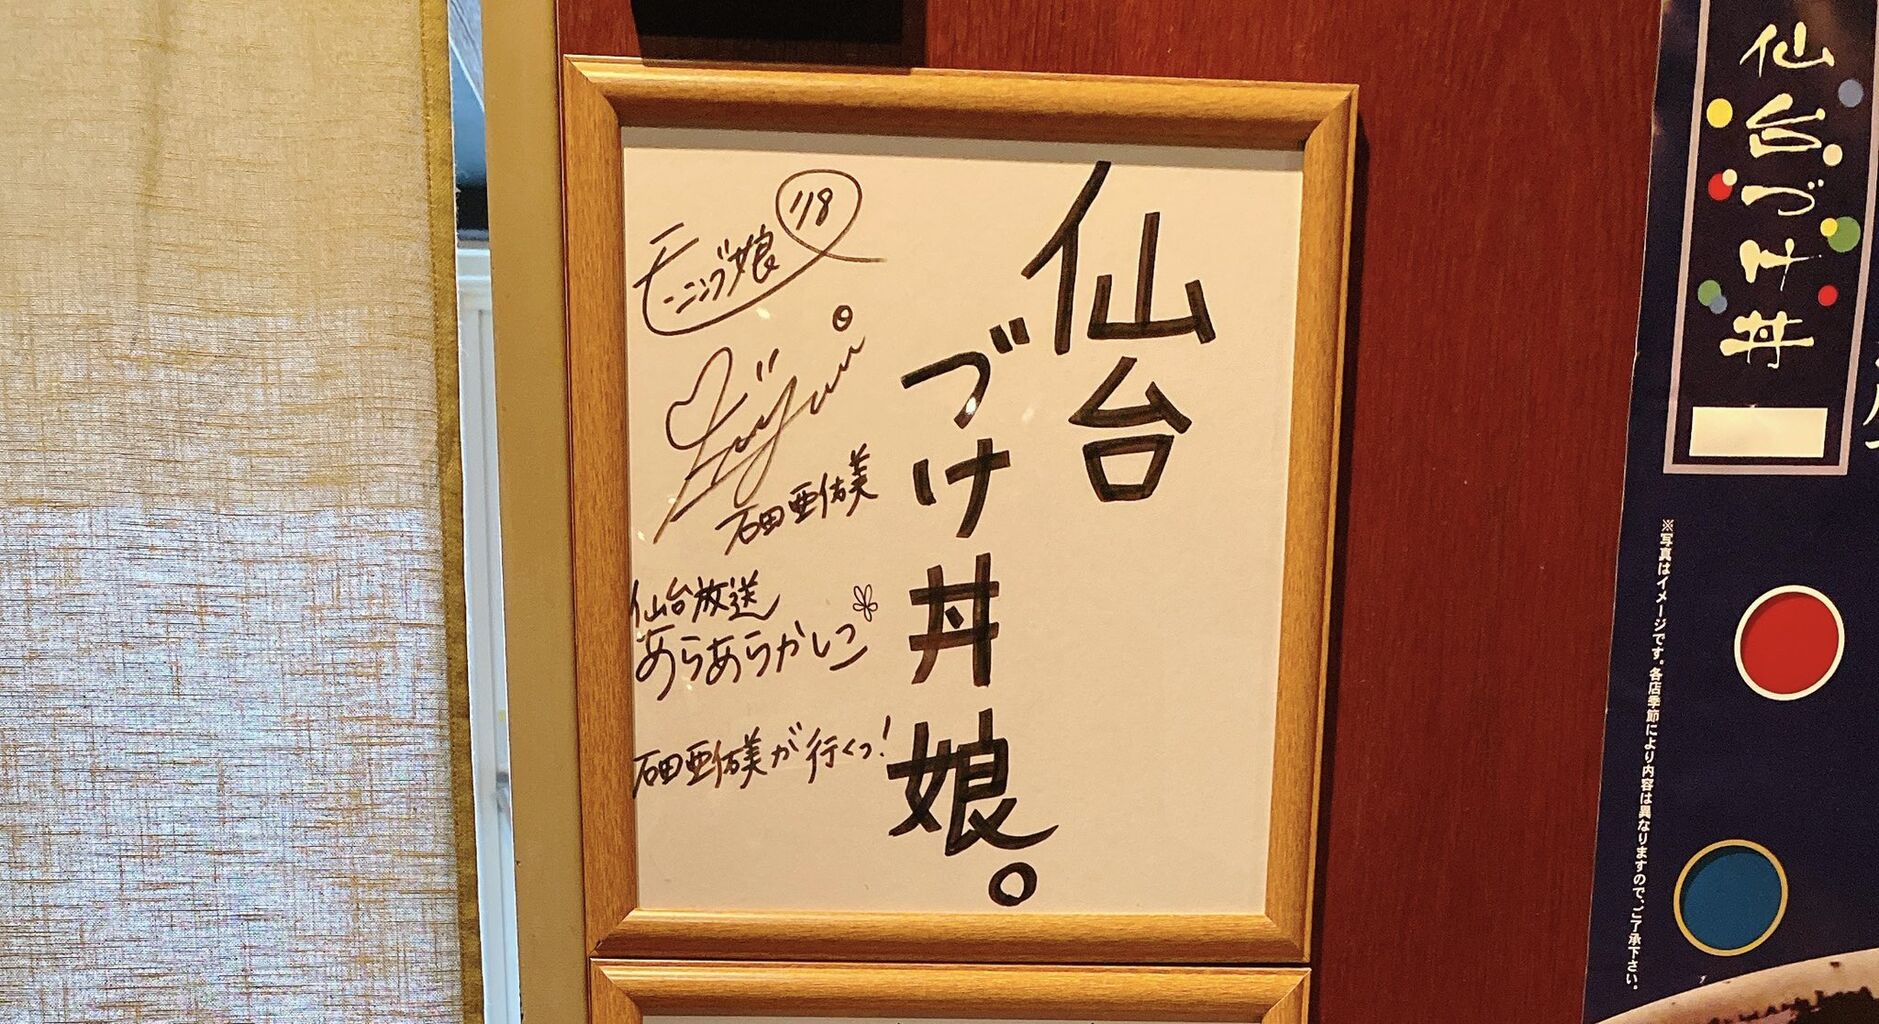 仙台
づけ丼娘。
モーニング娘
'18
Ayumi
石田亜佑美
仙台放送
あらあらかしこ
石田亜佑美が行くっ!
仙台づけ丼
※写真はイメージです。各店季節により内容は異なりますので、ご了承下さい。